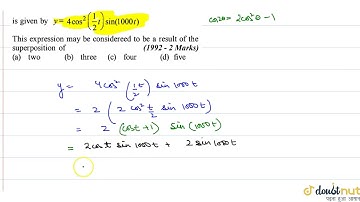 is given by y = 4cos²(1/2 t) sin(1000t)
cos2θ = 2cos²θ - 1
This expression may be considereed to be a result of the
superposition of (1992 - 2 Marks)
(a) two (b) three (c) four (d) five
y = 4cos² (1/2 t) sin 1000t
= 2 ( 2 cos² t/2 sin 1000t )
= 2 (cost+1) sin (1000t)
= 2cost sin 1000t + 2 sin 1000t
doubtnut